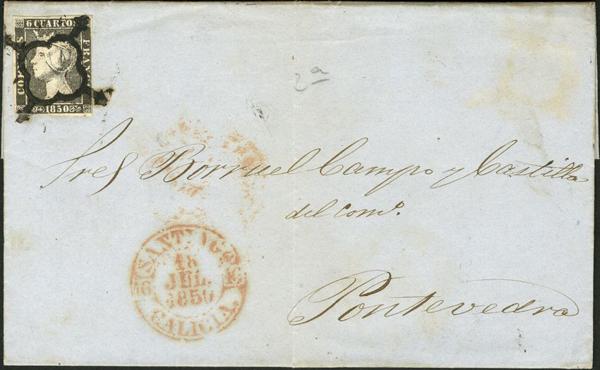 6 CUARTOS
CORREOS
FRANCO
1850
2ª
Sres Borruel Campo y Castilla
del comº.
Pontevedra
SANTIAGO
18
JUL
1850
GALICIA.